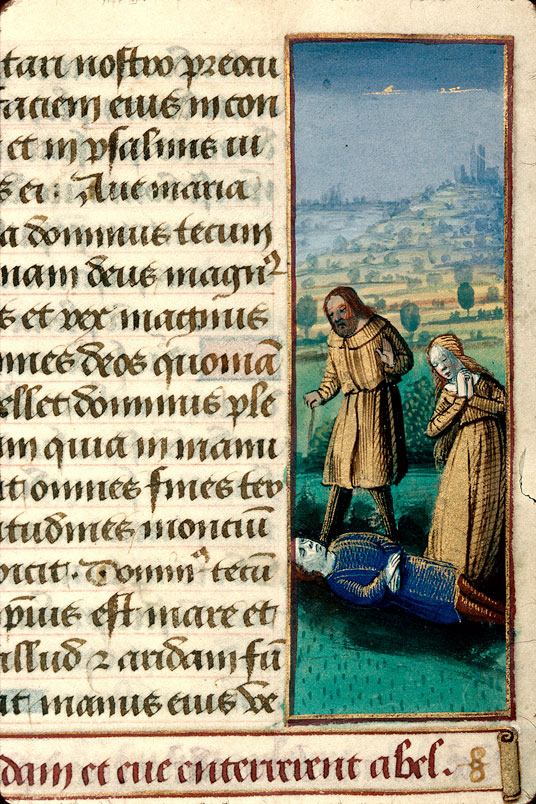 tari nostro preocu
faciem eius in con
et in psalmis iu
s ei: Aue maria
a dominus tecum
niam deus magnꝰ
s et rex magnus
mnes deos quoniā
ellet dominus ple
am quia in manu
nt omnes fines ter
itudines monciū
picit. Dominꝰ tecū
pm̄ est mare et
illud ⁊ aridam fū
nt manus eius Ve
dam et eue enterrerent abel.